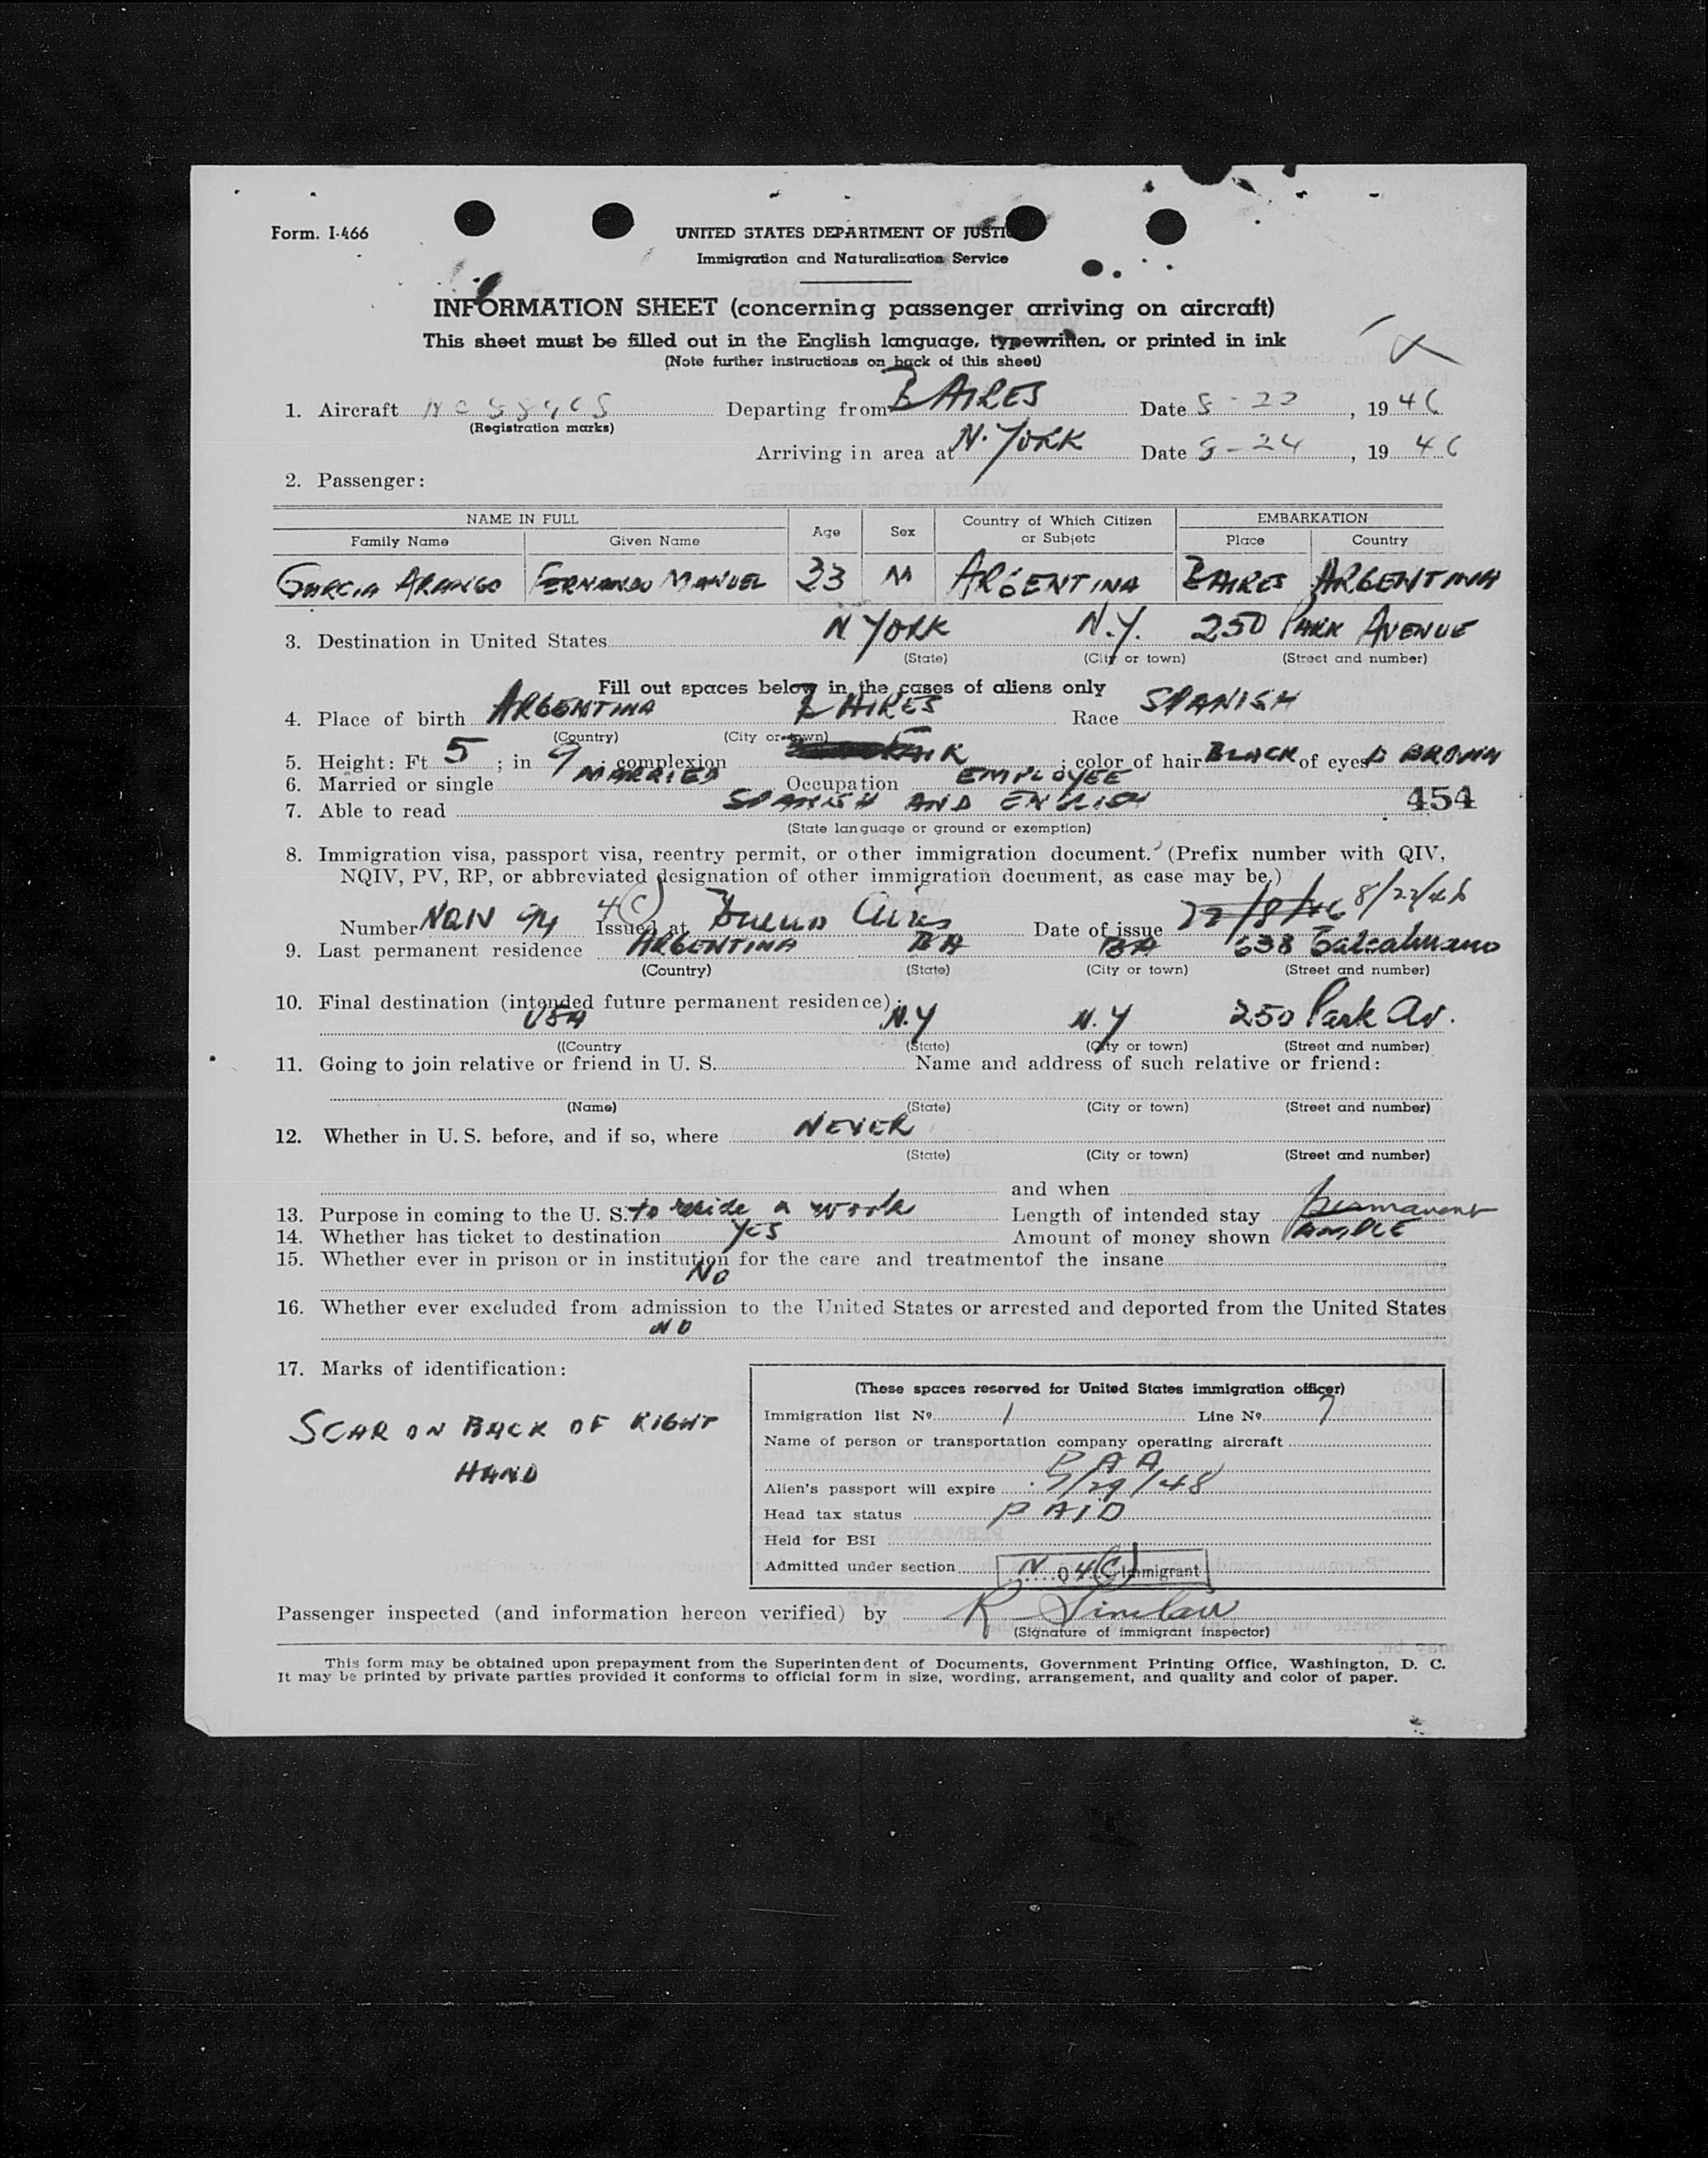 Form. I-466
UNITED STATES DEPARTMENT OF JUSTIC
Immigration and Naturalization Service
INFORMATION SHEET (concerning passenger arriving on aircraft)
This sheet must be filled out in the English language, typewritten, or printed in ink
(Note further instructions on back of this sheet)
1. Aircraft Departing from B AIRES Date 8-22, 1946
(Registration marks)
Arriving in area at N. YORK Date 8-24, 1946
2. Passenger:
NAME IN FULL Age Sex Country of Which Citizen or Subjetc EMBARKATION
Family Name Given Name Place Country
GARCIA ARANGO FERNANDO MANUEL 33 M ARGENTINA BAIRES ARGENTINA
3. Destination in United States N YORK N.Y. 250 PARK AVENUE
(State) (City or town) (Street and number)
Fill out spaces below in the cases of aliens only
4. Place of birth ARGENTINA B AIRES Race SPANISH
(Country) (City or town)
5. Height: Ft 5 ; in 9 ; complexion FAIR ; color of hair BLACK of eyes D BROWN
6. Married or single MARRIED Occupation EMPLOYEE
7. Able to read SPANISH AND ENGLISH 454
(State language or ground or exemption)
8. Immigration visa, passport visa, reentry permit, or other immigration document. (Prefix number with QIV,
NQIV, PV, RP, or abbreviated designation of other immigration document, as case may be.)
Number NQIV 94 4(C) Issued at Buenos Aires Date of issue 22/8/46 8/22/46
9. Last permanent residence ARGENTINA BA BA 638 Talcahuano
(Country) (State) (City or town) (Street and number)
10. Final destination (intended future permanent residence):
USA N.Y N.Y 250 Park Av.
((Country (State) (City or town) (Street and number)
11. Going to join relative or friend in U. S. Name and address of such relative or friend:
(Name) (State) (City or town) (Street and number)
12. Whether in U. S. before, and if so, where NEVER
(State) (City or town) (Street and number)
and when
13. Purpose in coming to the U. S. to reside a work Length of intended stay permanent
14. Whether has ticket to destination YES Amount of money shown AMPLE
15. Whether ever in prison or in institution for the care and treatmentof the insane
NO
16. Whether ever excluded from admission to the United States or arrested and deported from the United States
NO
17. Marks of identification:
SCAR ON BACK OF RIGHT
HAND
(These spaces reserved for United States immigration officer)
Immigration list Nº 1 Line Nº 7
Name of person or transportation company operating aircraft
P A A
Alien's passport will expire 7/29/48
Head tax status PAID
Held for BSI
Admitted under section N 4(C) Immigrant
Passenger inspected (and information hereon verified) by R Sinclair
(Signature of immigrant inspector)
This form may be obtained upon prepayment from the Superintendent of Documents, Government Printing Office, Washington, D. C.
It may be printed by private parties provided it conforms to official form in size, wording, arrangement, and quality and color of paper.